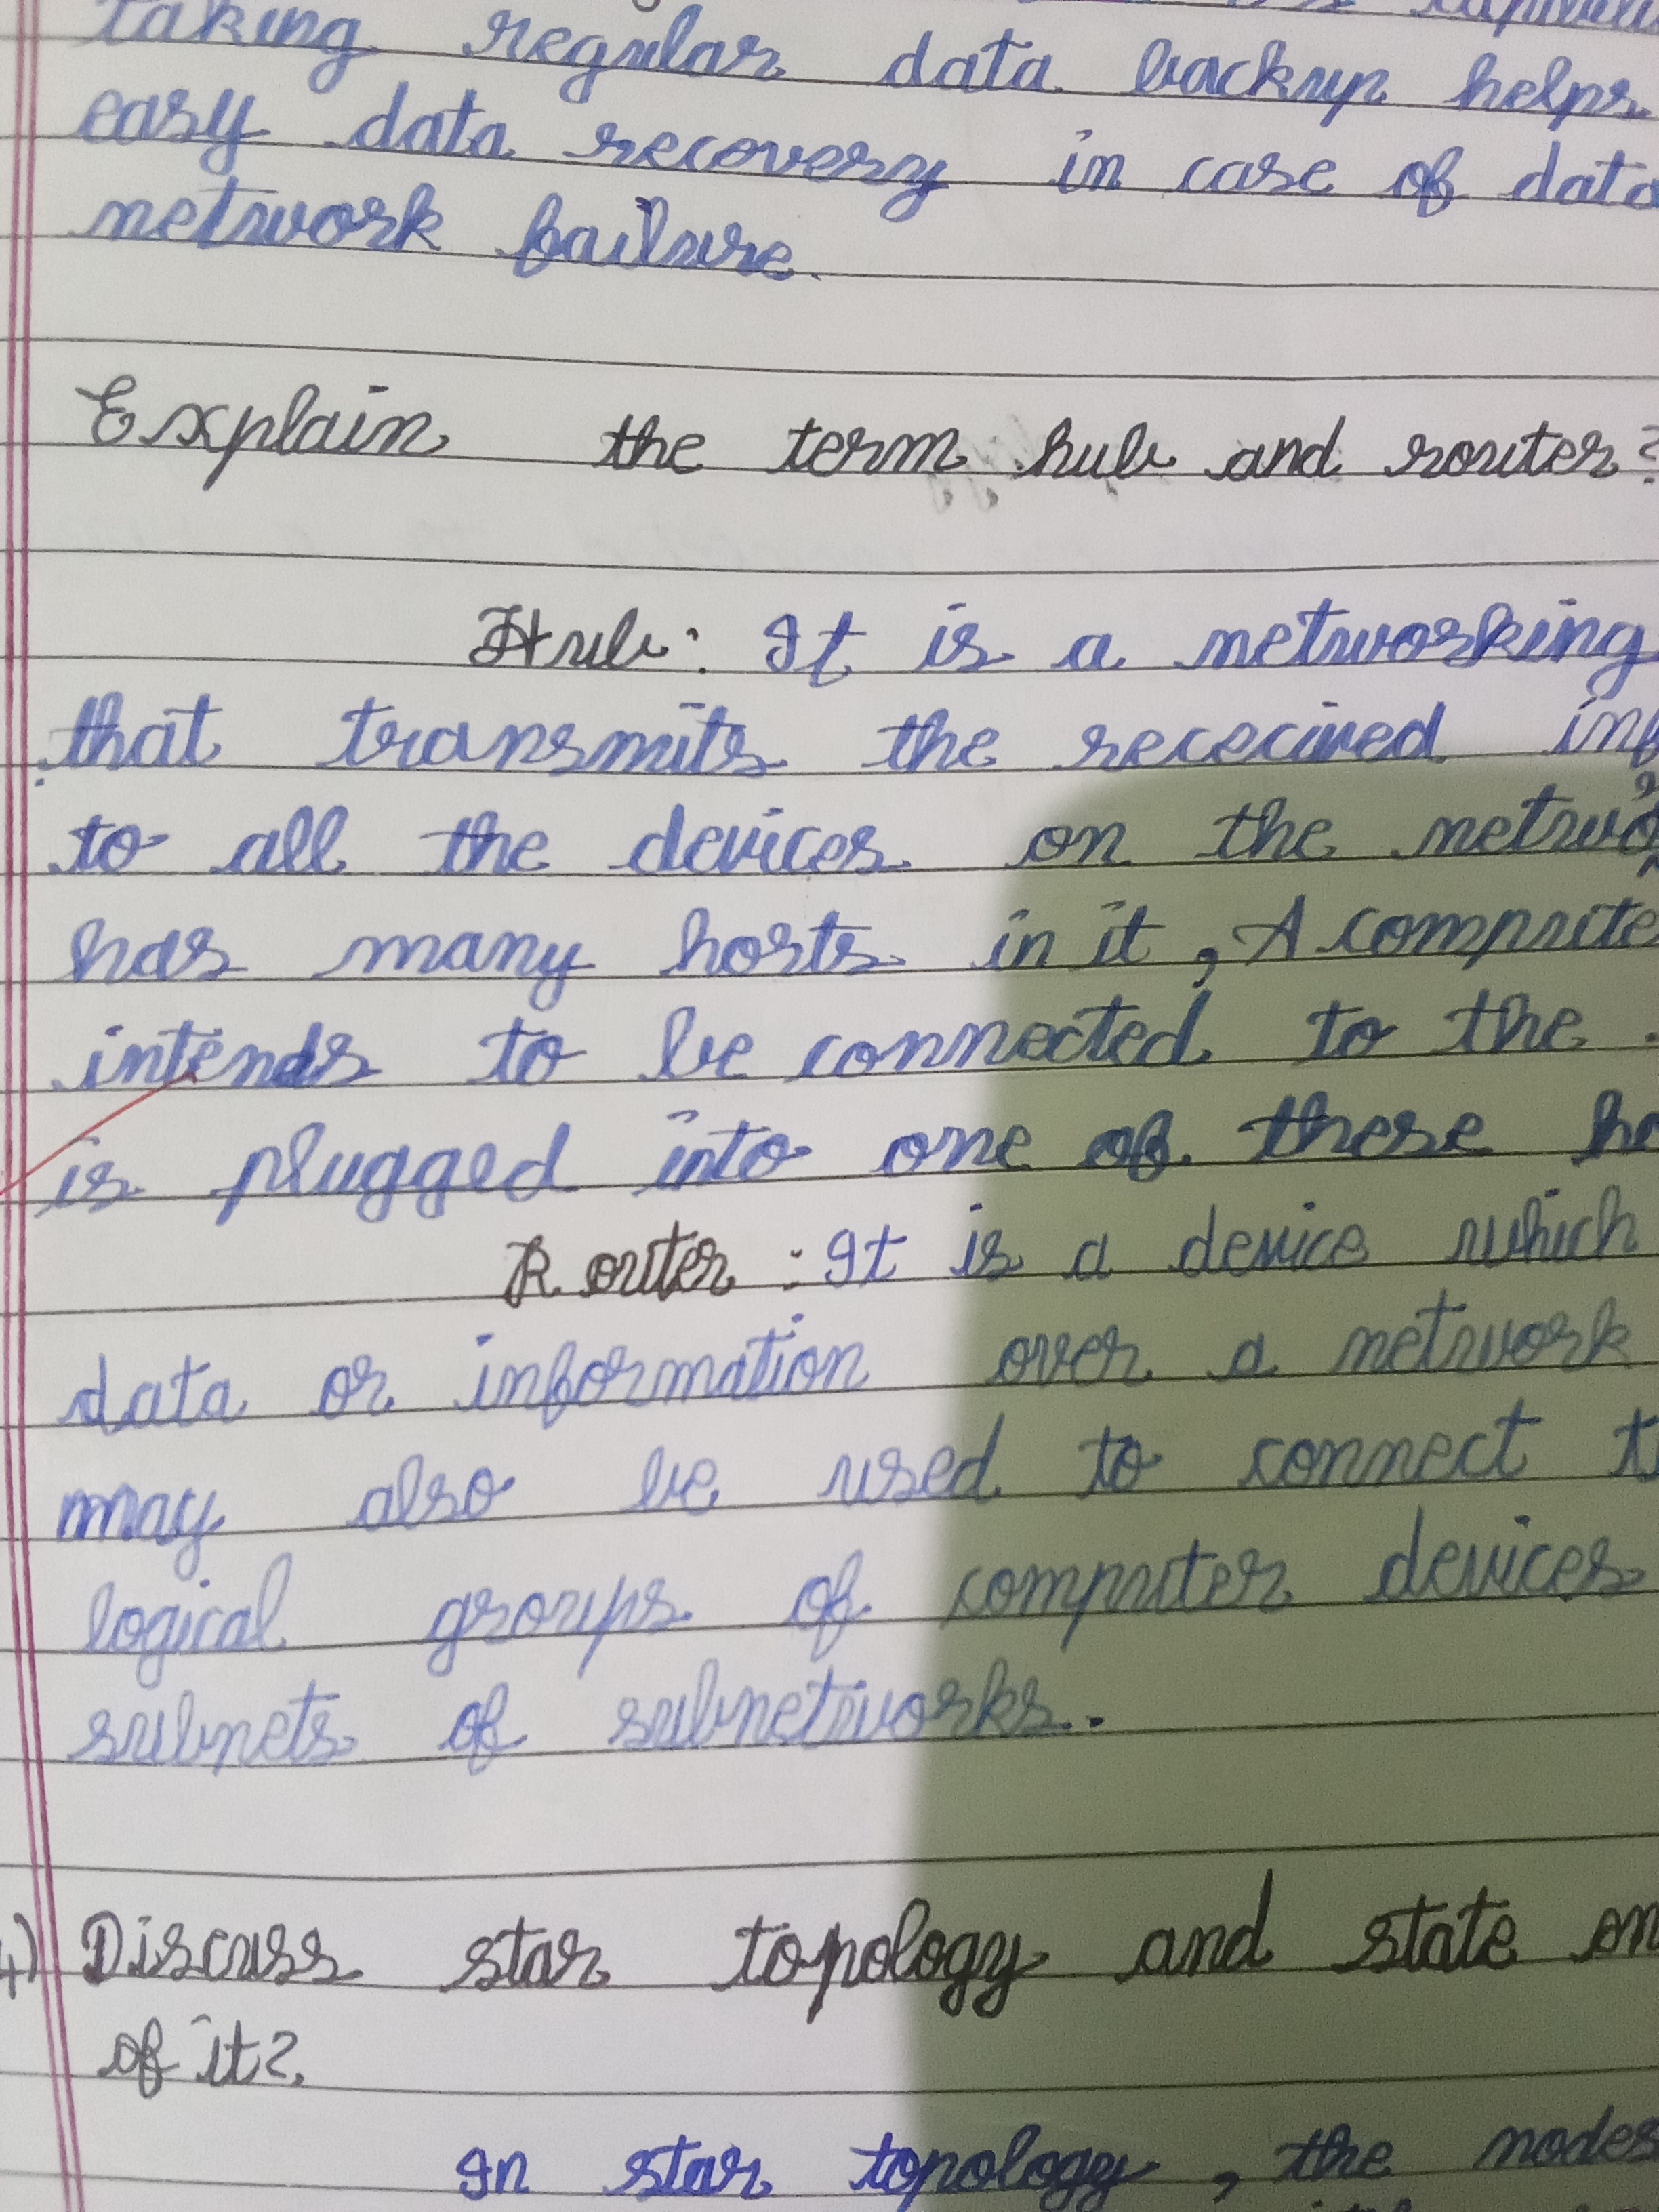 taking regular data backup helps
easy data recovery in case of data
network failure.
Explain the term hub and router?
Hub: It is a networking
that transmits the rececived inf
to all the devices on the netwo
has many hosts in it, A compute
intends to be connected to the
is plugged into one of these ho
Router: It is a device which
data or information over a network
may also be used to connect t
logical groups of computer devices
subnets of subnetworks.
4) Discuss star topology and state on
of it?
In star topology, the nodes